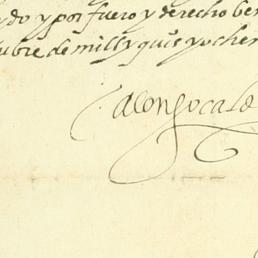 do y por fuero y derecho ber
ubre de mill y quis y ochen
alonso cale